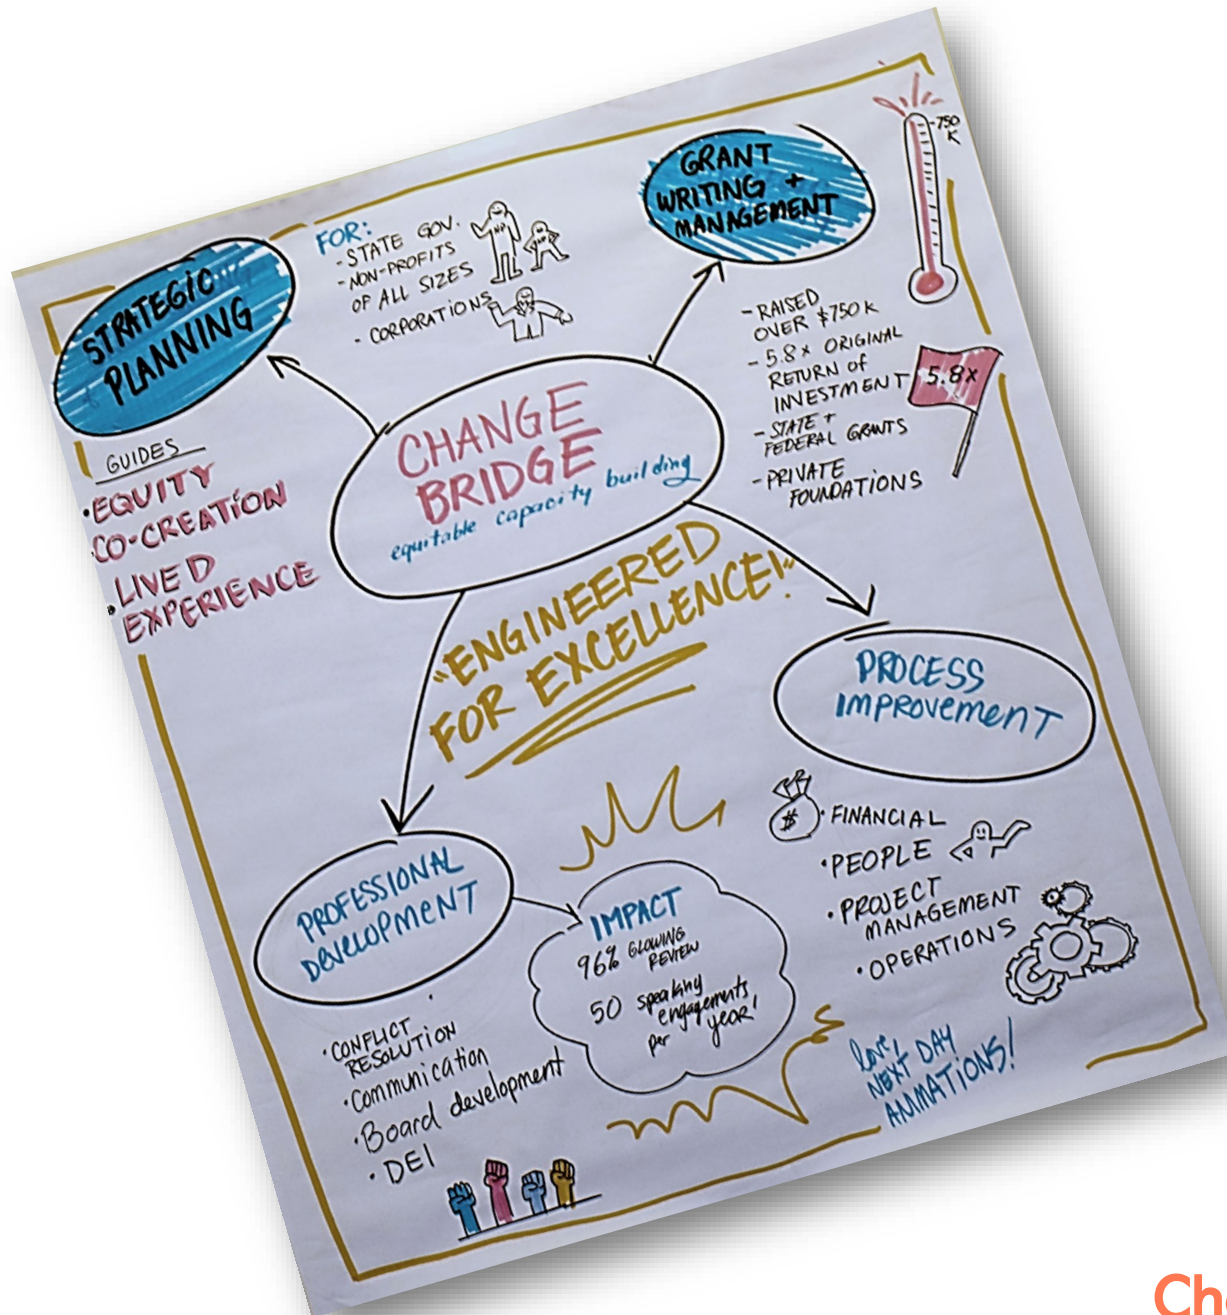 STRATEGIC
PLANNING
FOR:
- STATE GOV.
- NON-PROFITS
OF ALL SIZES
- CORPORATIONS
NP
NP
GUIDES
• EQUITY
• CO-CREATION
• LIVED
EXPERIENCE
GRANT
WRITING +
MANAGEMENT
-750
K
- RAISED
OVER $750 K
- 5.8x ORIGINAL
RETURN of
INVESTMENT
- STATE +
FEDERAL GRANTS
- PRIVATE
FOUNDATIONS
5.8x
CHANGE
BRIDGE
equitable capacity building
"ENGINEERED
FOR EXCELLENCE!"
PROCESS
IMPROVEMENT
$
• FINANCIAL
• PEOPLE
• PROJECT
MANAGEMENT
• OPERATIONS
PROFESSIONAL
DEVELOPMENT
• CONFLICT
RESOLUTION
• Communication
• Board development
• DEI
IMPACT
96% GLOWING
REVIEW
50 speaking
engagements
per year!
love,
NEXT DAY
ANIMATIONS!
Ch